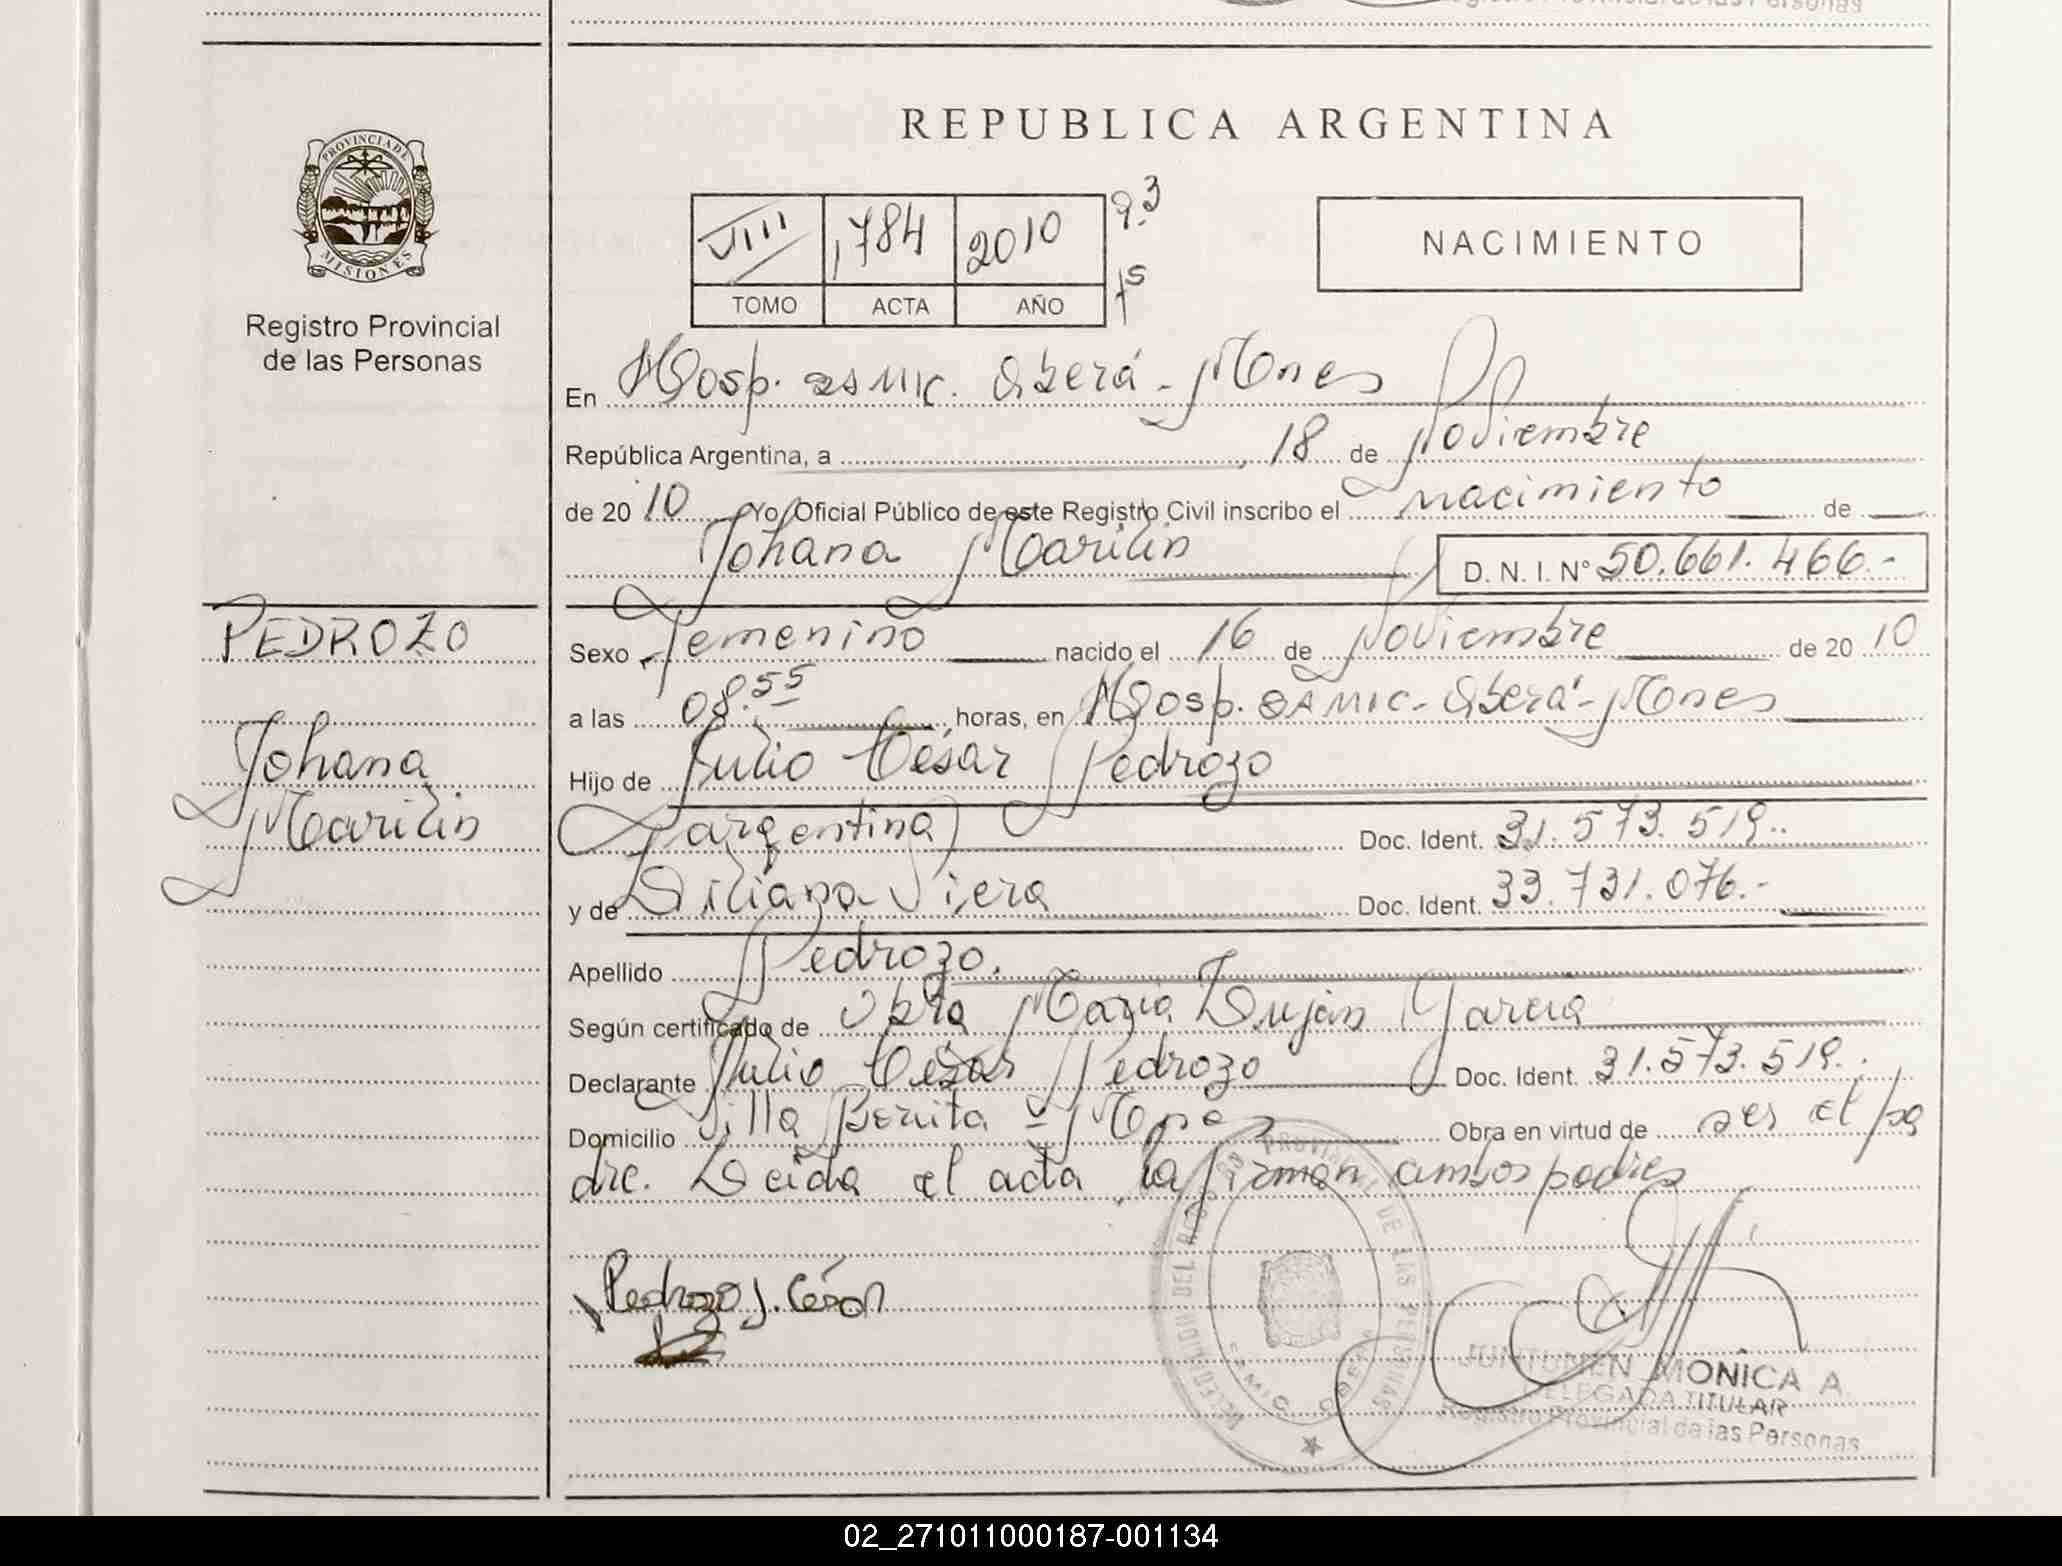 REPUBLICA ARGENTINA
PROVINCIA DE
MISIONES
Registro Provincial
de las Personas
VIII 1784 2010
TOMO ACTA AÑO
NACIMIENTO
En Hosp. SAMIC. Oberá - Mnes
República Argentina, a , 18 de Noviembre
de 20 10 Yo Oficial Público de este Registro Civil inscribo el nacimiento de
Johana Marilin D. N. I. N° 50.661.466.-
PEDROZO
Johana
Marilin
Sexo Femenino nacido el 16 de Noviembre de 20 10
a las 08.55 horas, en Hosp. SAMIC - Oberá - Mnes
Hijo de Julio César Pedrozo
(argentina) Doc. Ident. 31.573.519..
y de Liliana Viera Doc. Ident. 33.731.076.-
Apellido Pedrozo.
Según certificado de Obra María Luján García
Declarante Julio César Pedrozo Doc. Ident. 31.573.519.
Domicilio Villa Bonita - Obra en virtud de ser el pa
dre. Leida el acta la firman ambos padres
Pedrozo J. César
JUNTUNEN MONICA A.
DELEGADA TITULAR
Registro Provincial de las Personas
02_271011000187-001134